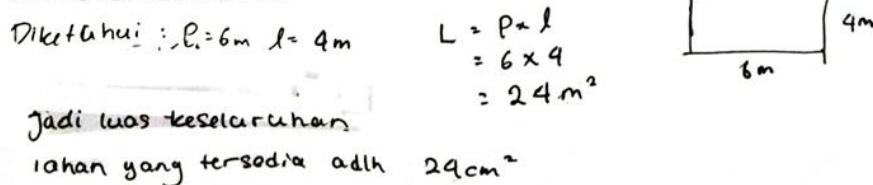 Diketahui : P = 6m l = 4m
L = P x l
= 6 x 4
= 24 m²
4m
6m
Jadi luas keseluruhan
lahan yang tersedia adlh 24cm²